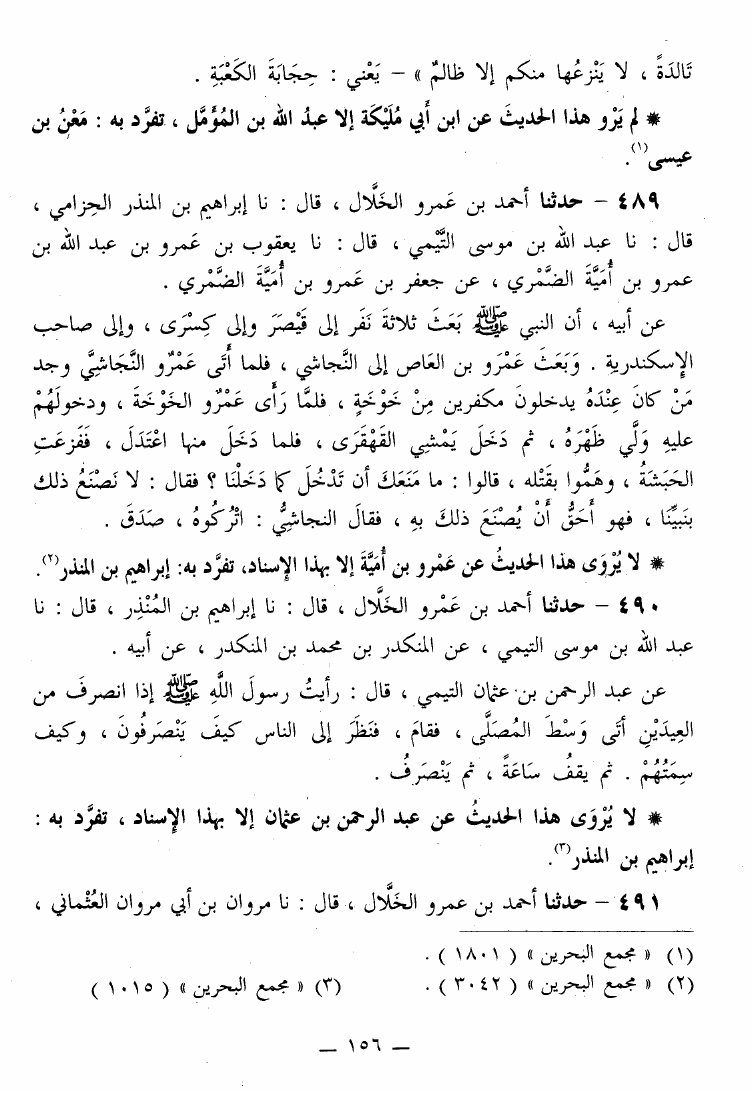 تَالدَةً ، لا يَنْزِعُها منكم إلا ظالمٌ » – يَعْني : حِجَابَةَ الكَعْبَةِ .
* لم يَرْوِ هذا الحديثَ عن ابن أبي مُلَيْكَة إلا عبدُ الله بن المُؤَمَّل ، تفرَّد به : مَعْنُ بن
عيسى(١).
٤٨٩ – حدثنا أحمد بن عَمرو الخَلَّال ، قال : نا إبراهيم بن المنذر الحِزامي ،
قال : نا عبد الله بن موسى التَّيْمي ، قال : نا يعقوب بن عَمرو بن عبد الله بن
عمرو بن أُمَيَّة الضَّمْري ، عن جعفر بن عَمرو بن أُمَيَّةَ الضَّمْري .
عن أبيه ، أن النبي ﷺ بَعَثَ ثلاثةَ نَفَرٍ إلى قَيْصَرَ وإلى كِسْرَى ، وإلى صاحب
الإسكندريةِ . وَبَعَثَ عَمْرَو بن العَاص إلى النَّجاشي ، فلما أَتَى عَمْرٌو النَّجَاشِيَّ وجد
مَنْ كانَ عِنْدَهُ يدخلونَ مكفرين مِنْ خَوْخَةٍ ، فلمَّا رَأَى عَمْرٌو الخَوْخَةَ ، ودخولَهُمْ
عليهِ وَلَّي ظَهْرَهُ ، ثم دَخَلَ يَمْشِي القَهْقَرَى ، فلما دَخَلَ منها اعْتَدَلَ ، فَفَزعَتِ
الحَبَشَةُ ، وهَمُّوا بقَتْله ، قالوا : ما مَنَعَكَ أن تَدْخُلَ كما دَخَلْنَا ؟ فقال : لا نَصْنَعُ ذلك
بنَبِيِّنَا ، فهو أَحَقُّ أَنْ يُصْنَعَ ذلكَ بهِ ، فقالَ النجاشيُّ : اتْرُكُوهُ ، صَدَقَ .
* لا يُرْوَى هذا الحديثُ عن عَمْرِو بن أُمَيَّةَ إلا بهذا الإسناد، تفرَّد به: إبراهيم بن المنذر(٢).
٤٩٠ – حدثنا أحمد بن عَمْرو الخَلَّال ، قال : نا إبراهيم بن المُنْذِر ، قال : نا
عبد الله بن موسى التيمي ، عن المنكدر بن محمد بن المنكدر ، عن أبيه .
عن عبد الرحمن بن عثمان التيمي ، قال : رأيتُ رسولَ اللَّهِ ﷺ إذا انصرفَ من
العِيدَيْنِ أتَى وَسْطَ المُصَلَّى ، فقامَ ، فنَظَرَ إلى الناس كيفَ يَنْصَرِفُونَ ، وكيف
سِمَتُهُمْ . ثم يقفُ سَاعَةً ، ثم يَنْصَرِفُ .
* لا يُرْوَى هذا الحديثُ عن عبد الرحمن بن عثمان إلا بهذا الإسناد ، تفرَّد به :
إبراهيم بن المنذر(٣).
٤٩١ – حدثنا أحمد بن عمرو الخلَّال ، قال : نا مروان بن أبي مروان العُثْماني ،
(١) « مجمع البحرين » ( ١٨٠١ ) .
(٢) « مجمع البحرين » ( ٣٠٤٢ ) . (٣) « مجمع البحرين » ( ١٠١٥ )
– ١٥٦ –